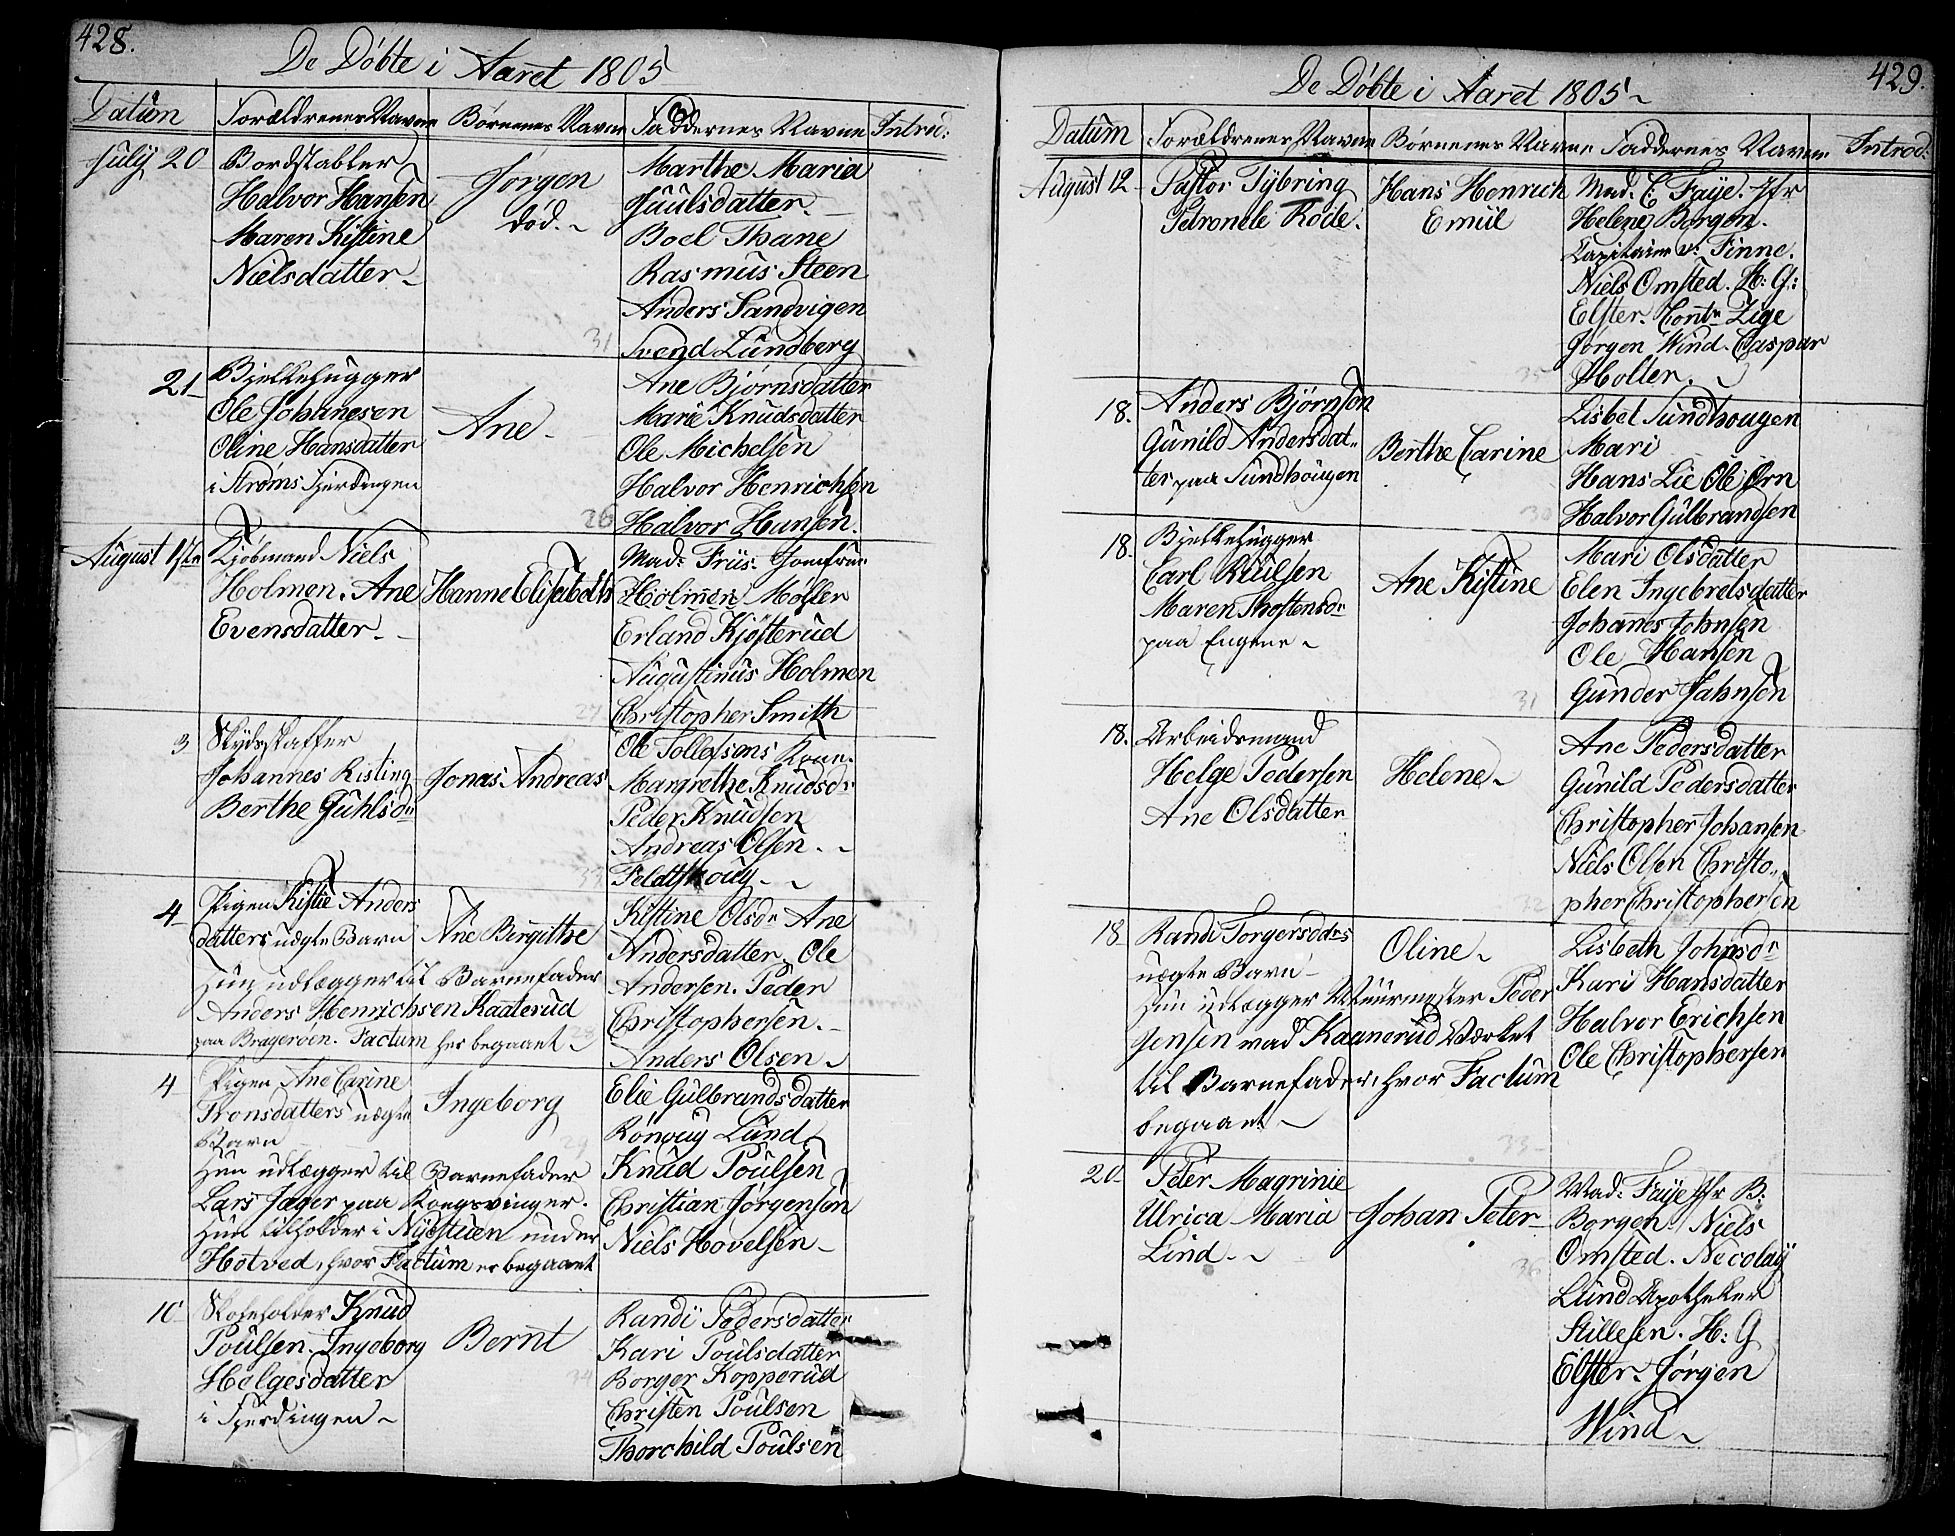 428.
De Döbte i Aaret 1805
Datum Forældrenes Navne Börnenes Navne Faddernes Navne Introd:
July 20
Bordstabler
Halvor Hansen
Maren Kistine
Nielsdatter
Jörgen
död.
Marthe Maria
Juulsdatter.
Boel Thane
Rasmus Steen
Anders Sandvigen
Svend Lundberg
31
21
Bjelkehugger
Ole Johanesen
Oline Hansdatter
i Ströms Fjerdingen
Ane
Ane Björnsdatter
Marie Knudsdatter
Ole Michelsen
Halvor Henrichsen
Halvor Hansen.
26
August 1ste
Kjöbmand Niels
Holmen. Ane
Evensdatter
Hanne Elisabeth
Mad: Friis. Jomfrue
Holmen Möller
Erland Kjösterud
Augustinus Holmen
Christopher Smith
27
3
Skydsskaffer
Johannes Risting
Berthe Juhlsdr
Jonas Andreas
Ole Tollefsens Kone
Margrethe Knudsdr
Peder Knudsen
Andreas Olsen
33
4
Pigen Kistie Anders
datters uægte Barn
Hun udlægger til Barnefader
Anders Henrichsen Kaaterud
paa Brageröen. Factum her begaaet
Ane Birgithe
Kistine Olsdr Ane
Andersdatter. Ole
Andersen. Peder
Christophersen.
Anders Olsen
28
4
Pigen Ane Carine
Tronsdatters uægte
Barn
Hun udlægger til Barnefader
Lars Jager paa Kongsvinger.
Hun tilholder i Nyestuen under
Hotved, hvor Factum er begaaet
Ingeborg
Elie Gulbrandsdatter
Rönnug Lund
Knud Poulsen
Christian Jörgensen
Niels Hovelsen
29
10
Knud
Poulsen. Ingeborg
Helgesdatter
i Fjerdingen
Bernt
Randi Pedersdatter
Kari Poulsdatter
Borger Kopperud
Christen Poulsen
Thorchild Poulsen
34
429.
De Döbte i Aaret 1805
Datum Forældrenes Navne Börnenes Navne Faddernes Navne Introd:
August 12
Pastor Tybring
Petronele Rode.
Hans Henrich
Emil
Mad. C Faye. Jfr
Helene Borgen.
Capitaine v: Finne.
Niels Omsted. H: G:
Elster. Contr Zige
Jörgen Wind. Caspar
Holter.
35
18.
Anders Björnsen
Gunild Andersdat-
ter paa Sundhougen
Berthe Carine
Lisbet Sundhougen
Mari
Hans Lie Ole Örn
Halvor Gulbrandsen
30
18.
Bjelkehugger
Carl
Maren Thostensdr
paa Engene
Ane Kistine
Mari Olsdatter
Elen Ingebretsdatter
Johannes Johnsen
Ole Hansen
Gunder Jahnsen
31
18.
Arbeidsmand
Helge Pedersen
Ane Olsdatter
Helene
Ane Pedersdatter
Gunild Pedersdatter
Christopher Johansen
Niels Olsen Christo-
pher Christophersen
32
18
Randi Torgersddrs
uægte Barn
Hun udlægger Muurmester Peder
Jensen ved Kaanerud Værket
til Barnefader, hvor Factum
begaaet
Oline
Lisbeth Johnsdr
Kari Hansdatter
Halvor Erichsen
Ole Christophersen
33
20
Peter Magrinie
Ulrica Maria
Lind
Johan Peter
Mad: Faye Jfr B:
Borgen Niels
Omsted. Necolay
Lund Apotheker
Stillesen. H: G
Elster Jörgen
Wind
36